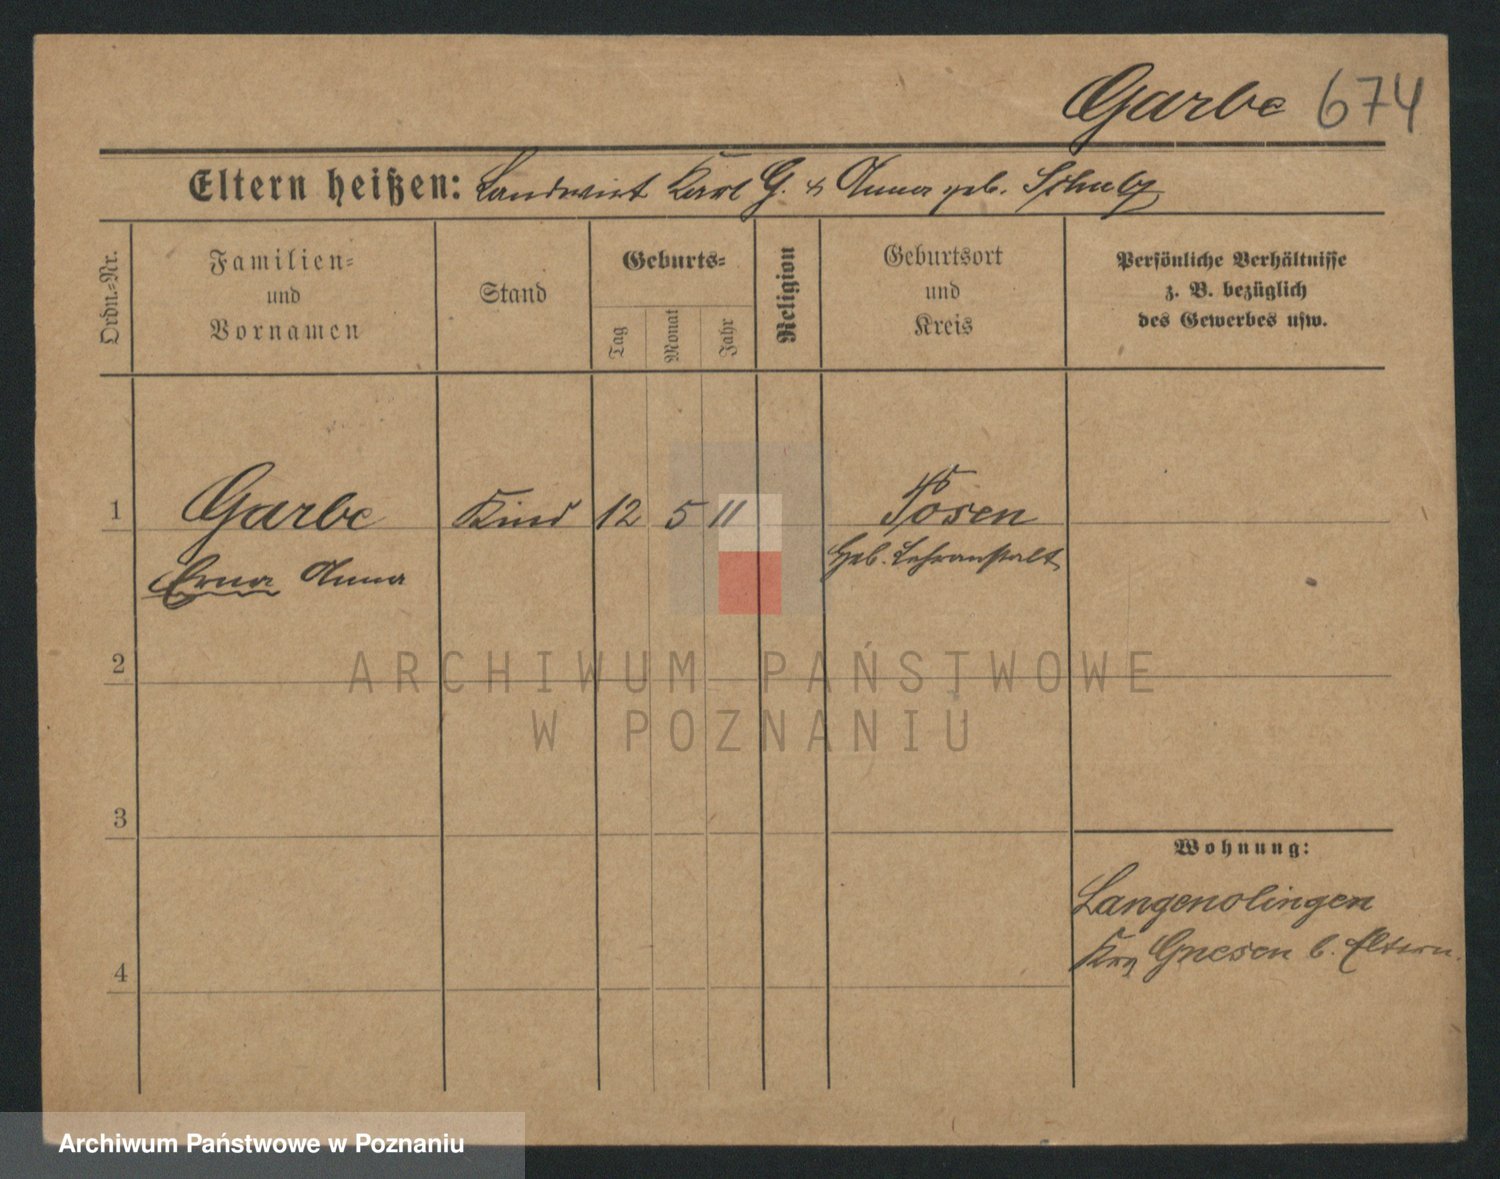 Garbe 674
Eltern heißen: Landwirt Karl G. & Anna geb. Schulz
Ordn.-Nr.
Familien-
und
Vornamen
Stand
Geburts-
Tag
Monat
Jahr
Religion
Geburtsort
und
Kreis
Persönliche Verhältnisse
z. B. bezüglich
des Gewerbes usw.
1 Garbe Kind 12 5 11 Posen
Erna Anna
Heb. Lehranstalt
2
ARCHIWUM PAŃSTWOWE
W POZNANIU
3
Wohnung:
Langenolingen
Krs Gnesen b. Eltern.
4
Archiwum Państwowe w Poznaniu